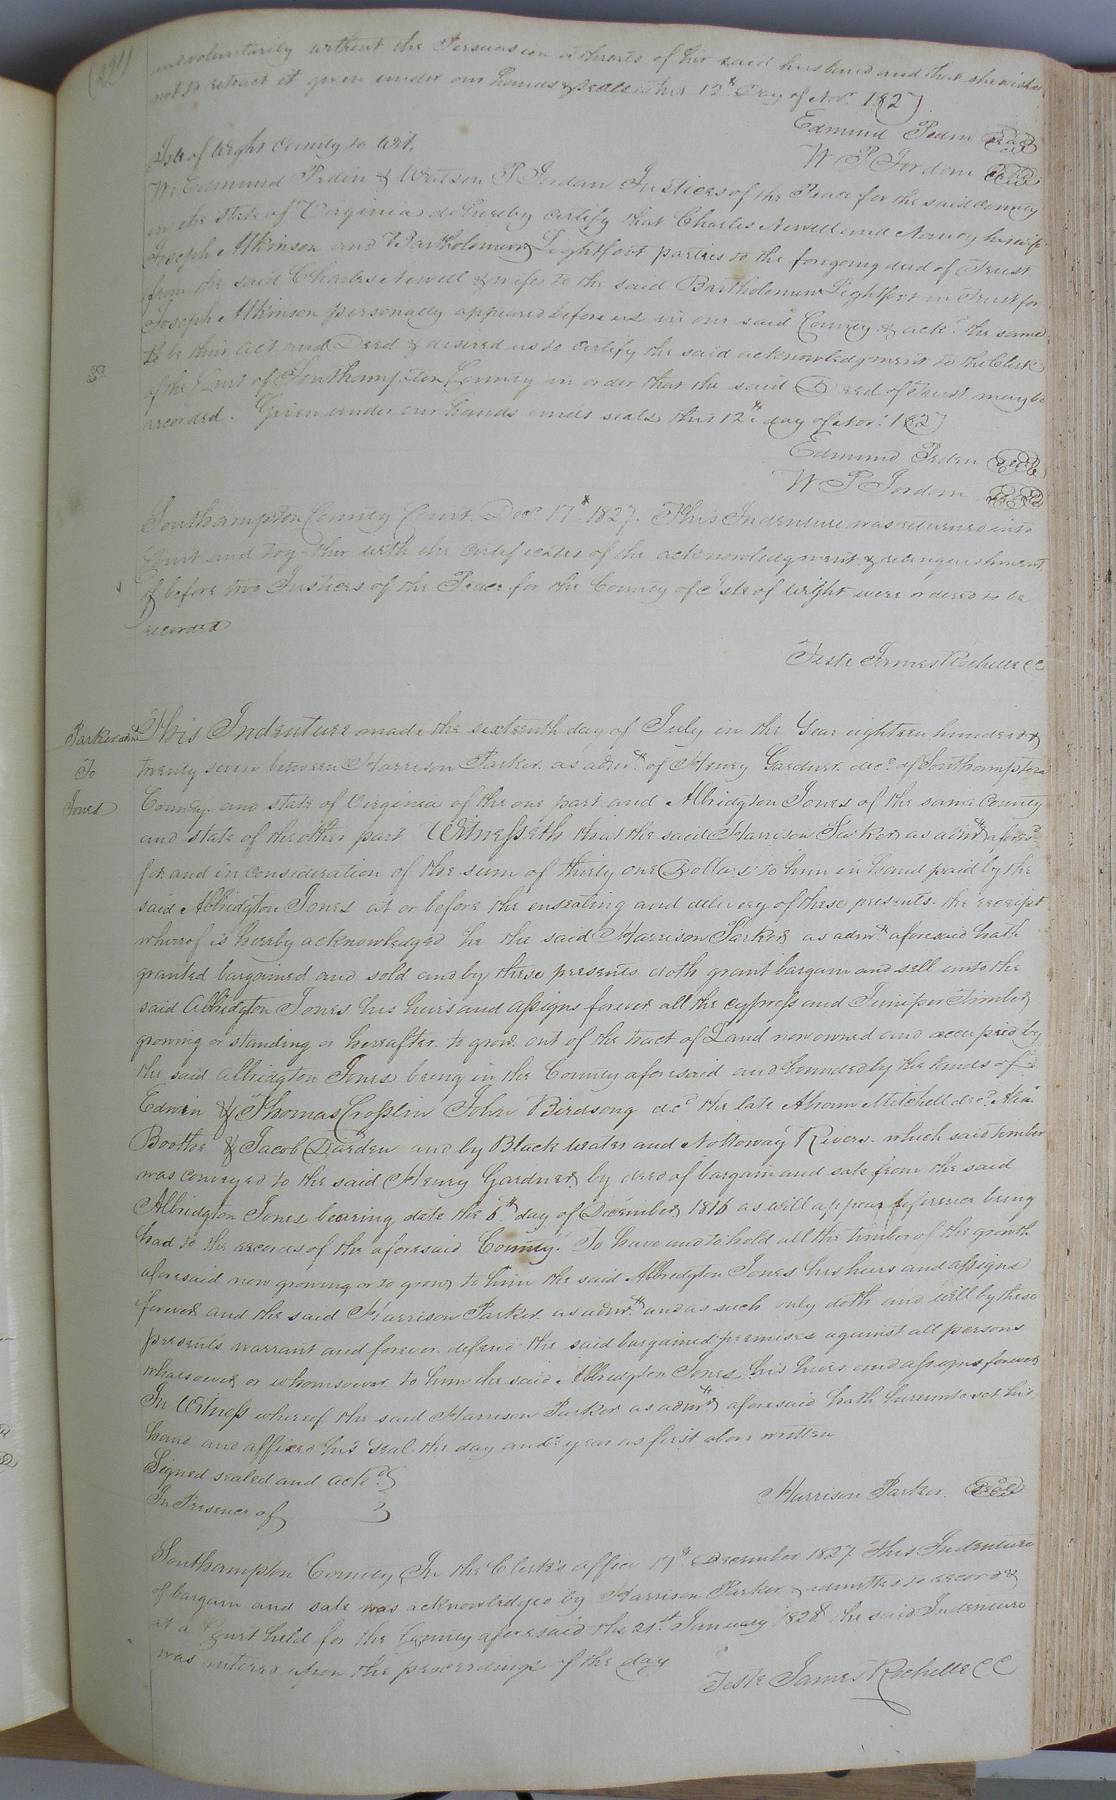 (291)
and voluntarily without the Persuasion or threats of her said husband and that she wishes
not to retract it given under our hands & seals this 12th Day of Novr. 1827
Edmund Peden Seal
W P Jordan Seal
Isle of Wight County to wit,
We Edmund Peden & Watson P Jordan Justices of the Peace for the said County
in the State of Virginia do hereby certify that Charles Newell and Nancy his wife
Joseph Atkinson and Bartholomew Lightfoot parties to the foregoing deed of Trust
from the said Charles Newell & wife to the said Bartholomew Lightfoot in Trust for
Joseph Atkinson personally appeared before us in our said County & ackd. the same
to be their act and Deed & desired us to certify the said acknowledgment to the Clerk
of the Court of Southampton County in order that the said Deed of Trust may be
recorded. Given under our hands and seals this 12th day of Novr. 1827
Edmund Peden Seal
W P Jordan Seal
Southampton County Court Decr. 17th 1827. This Indenture was returned into
Court and together with the certificates of the acknowledgment & relinquishment
of before two Justices of the Peace for the County of Isle of Wight were ordered to be
recorded
Teste James Rochelle CC
Parker adm
To
Jones
This Indenture made the sixteenth day of July in the Year eighteen hundred &
twenty seven between Harrison Parker as admr. of Henry Gardner decd. of Southampton
County and state of Virginia of the one part and Albridgton Jones of the same County
and state of the other part Witnesseth that the said Harrison Parker as admr. aforesd.
for and in consideration of the sum of thirty one Dollars to him in hand paid by the
said Albridgton Jones at or before the ensealing and delivery of these presents the receipt
whereof is hereby acknowledged he the said Harrison Parker as admr. aforesaid hath
granted bargained and sold and by these presents doth grant bargain and sell unto the
said Albridgton Jones his heirs and assigns forever all the cypress and Juniper Timber
growing or standing or hereafter to grow out of the tract of Land now owned and occupied by
the said Albridgton Jones being in the County aforesaid and bounded by the lands of
Edwin & Thomas Crosslin John Birdsong decd. the late Abram Mitchell decd.
Boothe & Jacob Darden and by Black water and Nottoway Rivers which said timber
was conveyed to the said Henry Gardner by deed of bargain and sale from the said
Albridgton Jones bearing date the 6th day of December 1816 as will appear reference being
had to the records of the aforesaid County. To have and to hold all the timber of the growth
aforesaid now growing or to grow to him the said Albridgton Jones his heirs and assigns
forever and the said Harrison Parker as admr. and as such only doth and will by these
presents warrant and forever defend the said bargained premises against all persons
whatsoever or whomsoever to him the said Albridgton Jones his heirs and assigns forever
In Witness whereof the said Harrison Parker as admr. aforesaid hath hereunto set his
hand and affixed his seal the day and year as first above written
Signed sealed and ackd.
In Presence of
Harrison Parker Seal
Southampton County In the Clerk's office 17th December 1827 This Indenture
of bargain and sale was acknowledged by Harrison Parker & admitted to record &
at a Court held for the County aforesaid the 21st January 1828 the said Indenture
was entered upon the proceedings of the day
Teste James Rochelle CC